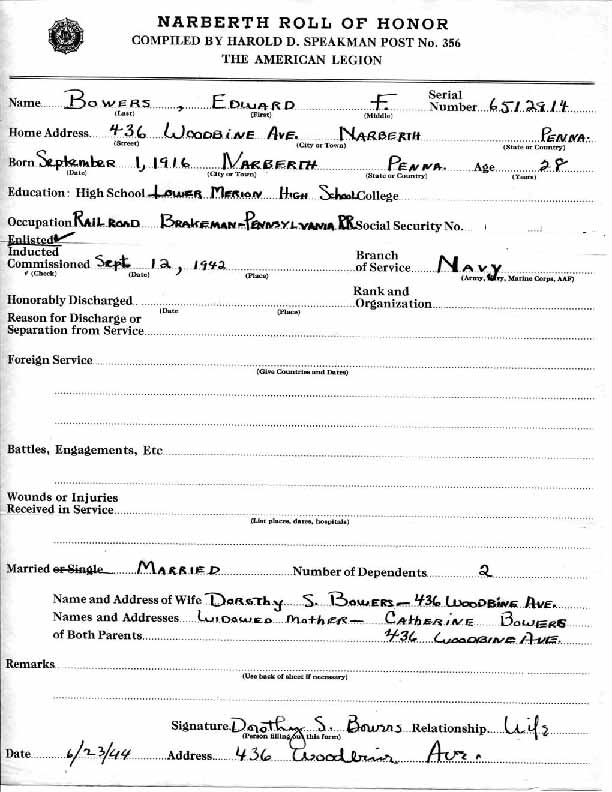 NARBERTH ROLL OF HONOR
COMPILED BY HAROLD D. SPEAKMAN POST No. 356
THE AMERICAN LEGION
Name BOWERS, EDWARD F. Serial Number 6512914
(Last) (First) (Middle)
Home Address 436 WOODBINE AVE. NARBERTH PENNA.
(Street) (City or Town) (State or Country)
Born SEPTEMBER 1, 1916 NARBERTH PENNA. Age 28
(Date) (City or Town) (State or Country) (Years)
Education: High School LOWER MERION HIGH SCHOOL College
Occupation RAILROAD BRAKEMAN-PENNSYLVANIA RR Social Security No.
Enlisted ✓
Inducted
Commissioned Sept 12, 1942 Branch of Service NAVY
(Check) (Date) (Place) (Army, Navy, Marine Corps, AAF)
Honorably Discharged Rank and Organization
(Date (Place)
Reason for Discharge or
Separation from Service
Foreign Service
(Give Countries and Dates)
Battles, Engagements, Etc
Wounds or Injuries
Received in Service
(List places, dates, hospitals)
Married or Single MARRIED Number of Dependents 2
Name and Address of Wife DOROTHY S. BOWERS - 436 WOODBINE AVE.
Names and Addresses WIDOWED MOTHER - CATHERINE BOWERS
of Both Parents 436 WOODBINE AVE.
Remarks
(Use back of sheet if necessary)
Signature Dorothy S. Bowers Relationship Wife
(Person filling out this form)
Date 6/23/44 Address 436 Woodbine Ave.